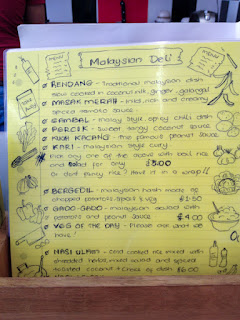 MENU
Malaysian Deli
MENU
RENDANG - Traditional malaysian dish
slow cooked in coconut milk, ginger, galangal
MASAK MERAH - mild, rich and creamy
spiced tomato sauce.
SAMBAL - malay style spicy chilli dish
PERCIK - sweet tangy coconut sauce
KUAH KACANG - the famous peanut sauce
KARI - malaysian style curry
Pick any one of the above with basil rice
and for only £8.00
Or don't fancy rice? Have it in a wrap!!
BERGEDIL - malaysian hash made of
chopped potatoes, & veg £1.50
GADO-GADO - malaysian salad with
peanuts and peanut sauce £4.00
VEG OF THE DAY - Please ask what we
have!
NASI ULAM - cold cooked rice mixed with
shredded herbs, mixed salad and spiced
toasted coconut + choice of dish £6.00